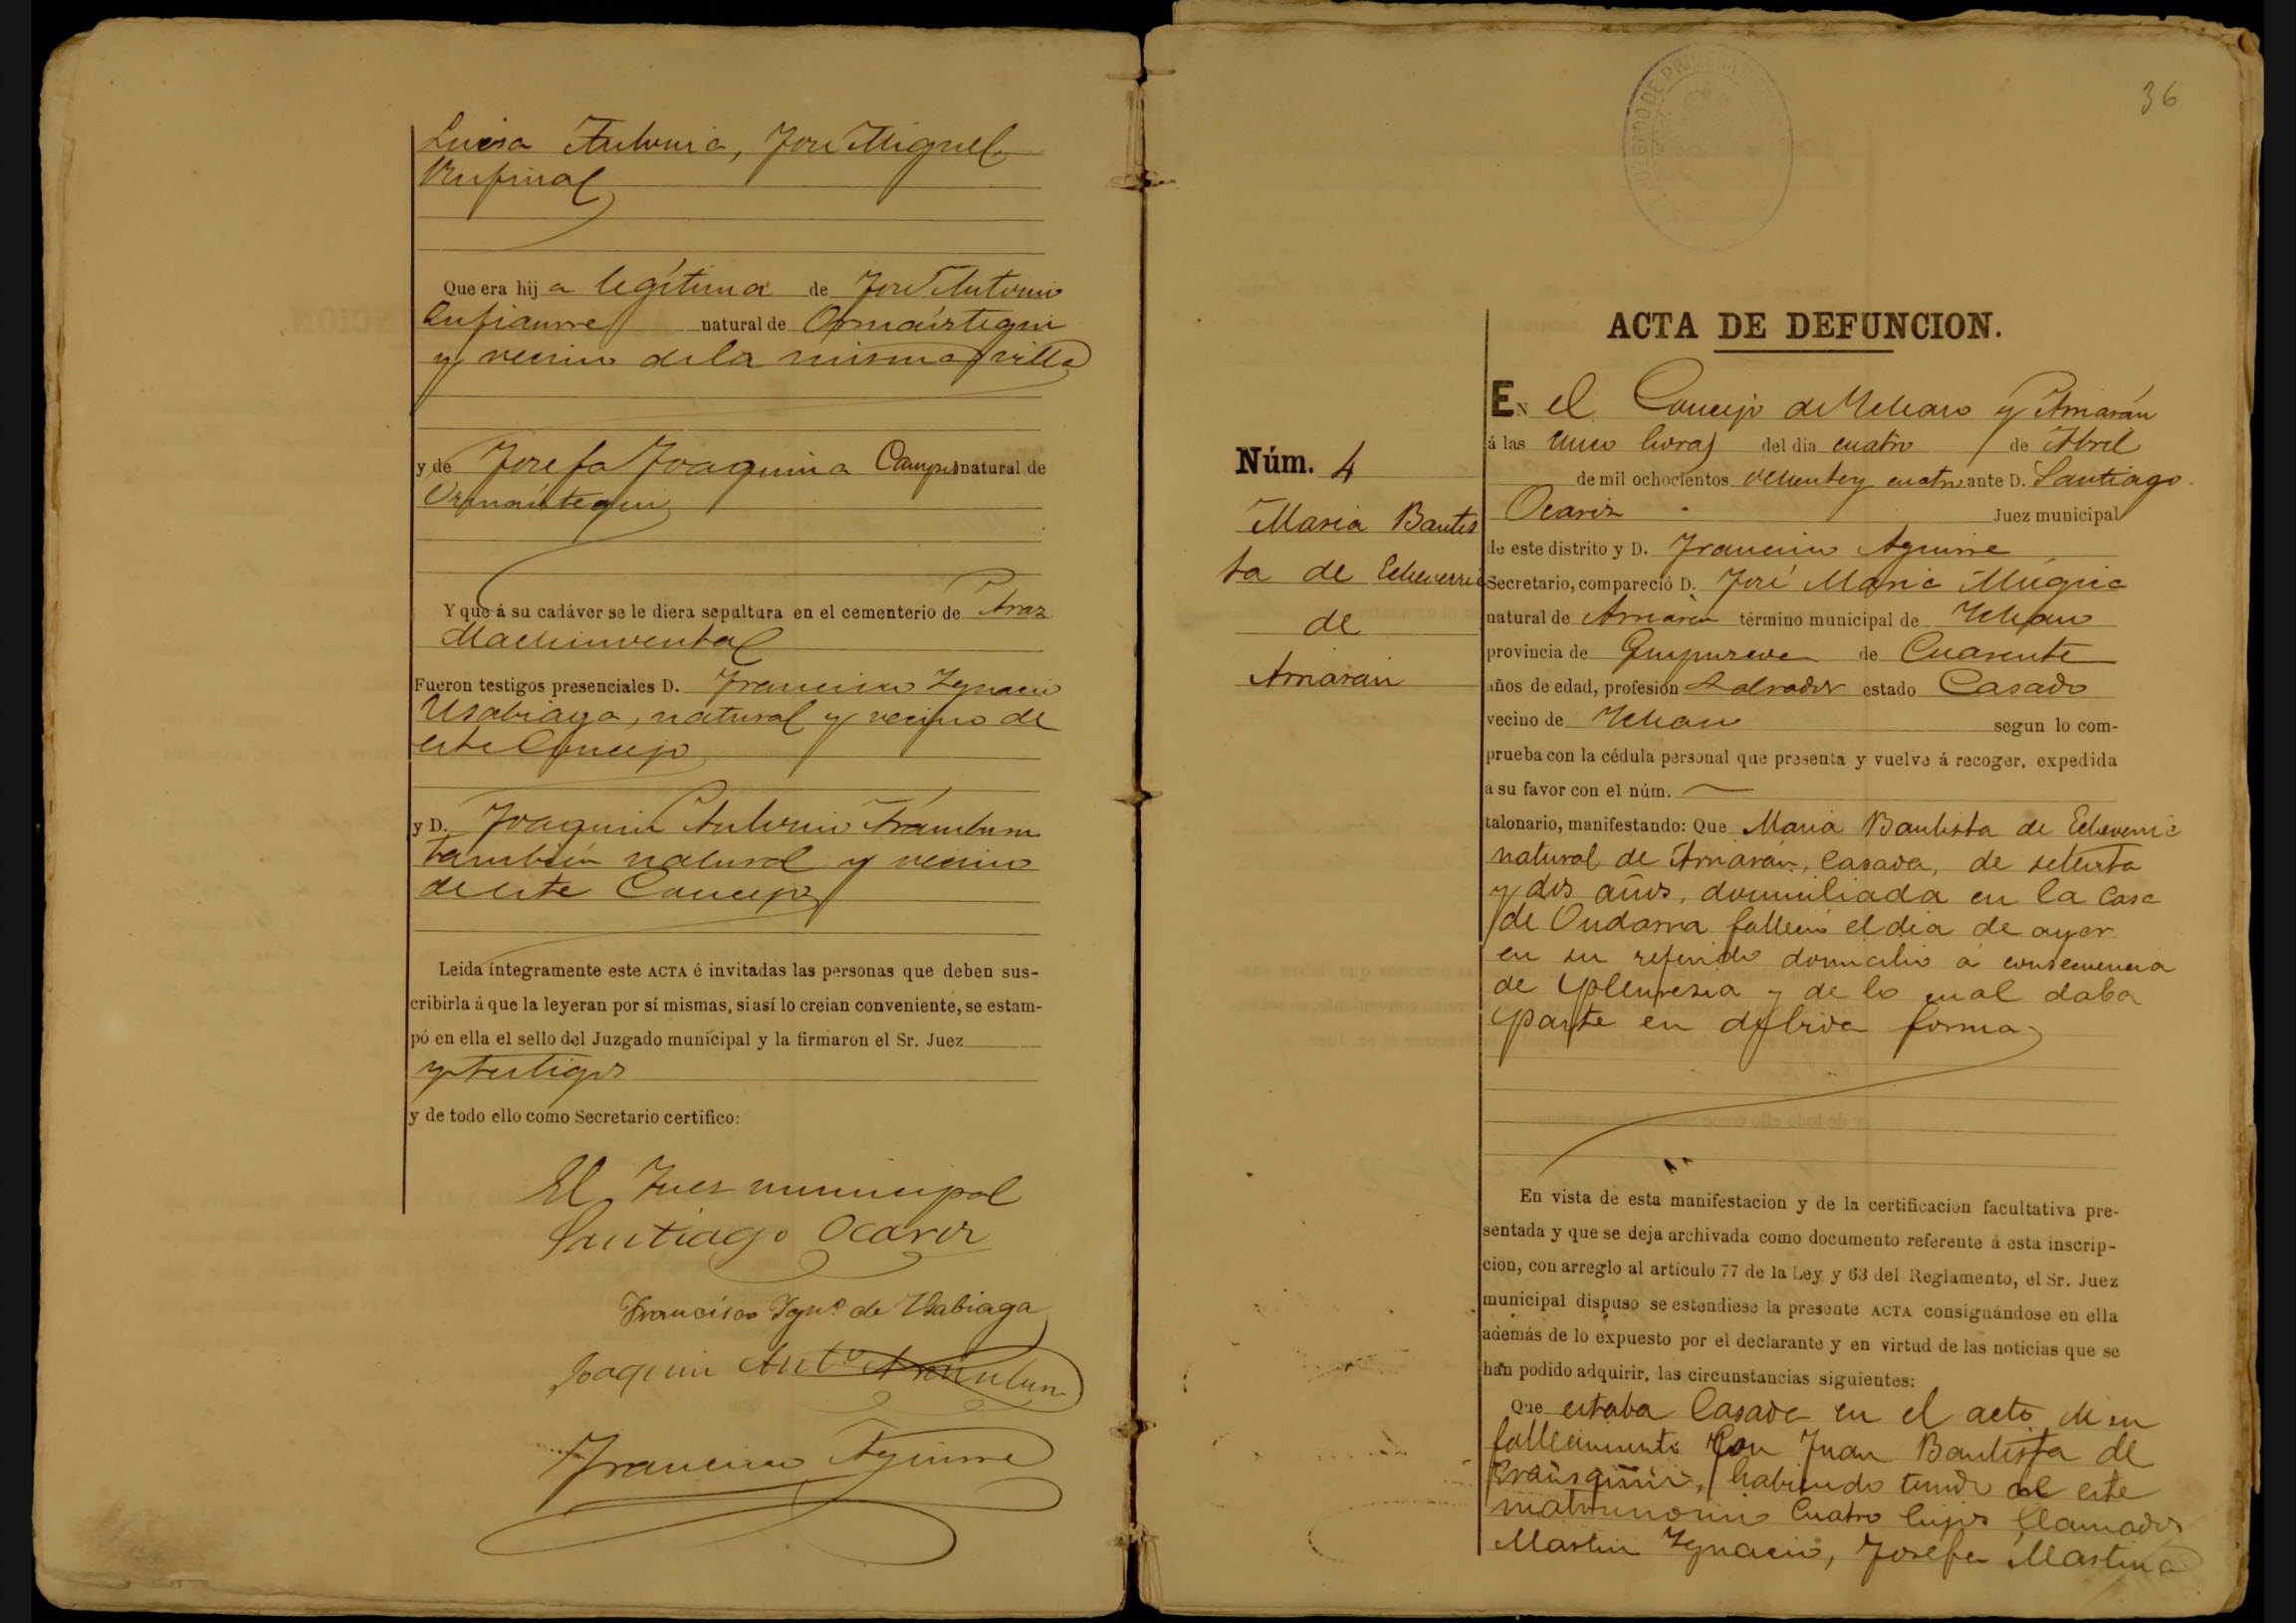 Luisa Antonia, José Miguel
Rufina
Que era hija legítima de José Antonio
natural de Ormáiztegui
y vecino de la misma villa
y de Josefa Joaquina Campos natural de
Ormáiztegui
Y que á su cadáver se le diera sepultura en el cementerio de Astiaz
Machinventa
Fueron testigos presenciales D. Francisco Ygnacio
Usabiaga, natural y vecino de
este Concejo
y D. Joaquin Antonio Aramburu
también natural y vecino
de este Concejo
Leida íntegramente este ACTA é invitadas las personas que deben sus-
cribirla á que la leyeran por sí mismas, si así lo creian conveniente, se estam-
pó en ella el sello del Juzgado municipal y la firmaron el Sr. Juez
y testigos
y de todo ello como Secretario certifico:
El Juez municipal
Santiago Ocariz
Francisco Ygn.º de Usabiaga
Joaquin Ant.º Aramburu
Francisco Aguirre
36
ACTA DE DEFUNCION.
Núm. 4
Maria Bautis
ta de Echeverria
de
Arriarán
EN el Concejo de Ychaso y Arriarán
á las cinco horas del dia cuatro de Abril
de mil ochocientos ochenta y cuatro ante D. Santiago
Ocariz Juez municipal
de este distrito y D. Francisco Aguirre
Secretario, compareció D. José Maria Múgica
natural de Arriarán término municipal de Ychaso
provincia de Guipuzcoa de Cuarenta
años de edad, profesión Labrador estado Casado
vecino de Ychaso segun lo com-
prueba con la cédula personal que presenta y vuelve á recoger, expedida
a su favor con el núm.
talonario, manifestando: Que Maria Bautista de Echeverria
natural de Arriarán, Casada, de setenta
y dos años, domiciliada en la Casa
de Ondarra falleció el dia de ayer
en su referido domicilio á consecuencia
de Pleuresia y de lo cual daba
parte en debida forma
En vista de esta manifestacion y de la certificacion facultativa pre-
sentada y que se deja archivada como documento referente á esta inscrip-
cion, con arreglo al artículo 77 de la Ley y 63 del Reglamento, el Sr. Juez
municipal dispuso se estendiese la presente ACTA consignándose en ella
además de lo expuesto por el declarante y en virtud de las noticias que se
han podido adquirir, las circunstancias siguientes:
Que estaba Casada en el acto de su
fallecimiento con Juan Bautista de
Erausquin, habiendo tenido de este
matrimonio Cuatro hijos llamados
Martin Ygnacio, Josefa Martina